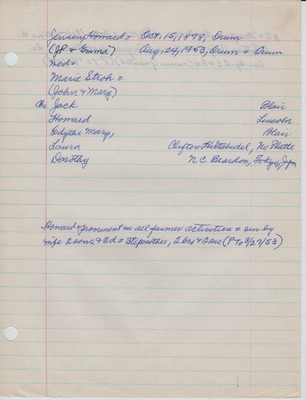 Howard = Oct. 15, 1898, Orum
(J.P. & Emma) Aug. 24, 1953, Orum + Orum
med =
Marie Stroh =
(John & Mary)
Ch. Jack Blair
Howard Lincoln
Edythe Mary, Blair
Laura Clifton No Platte
Dorothy N.C. Beardon, Tokyo, Japan
Howard prominent in all farmer activities = sur by
wife 2 sons & 2 d = stepmother, 2 bro & 2 sis (P To 8/27/53)